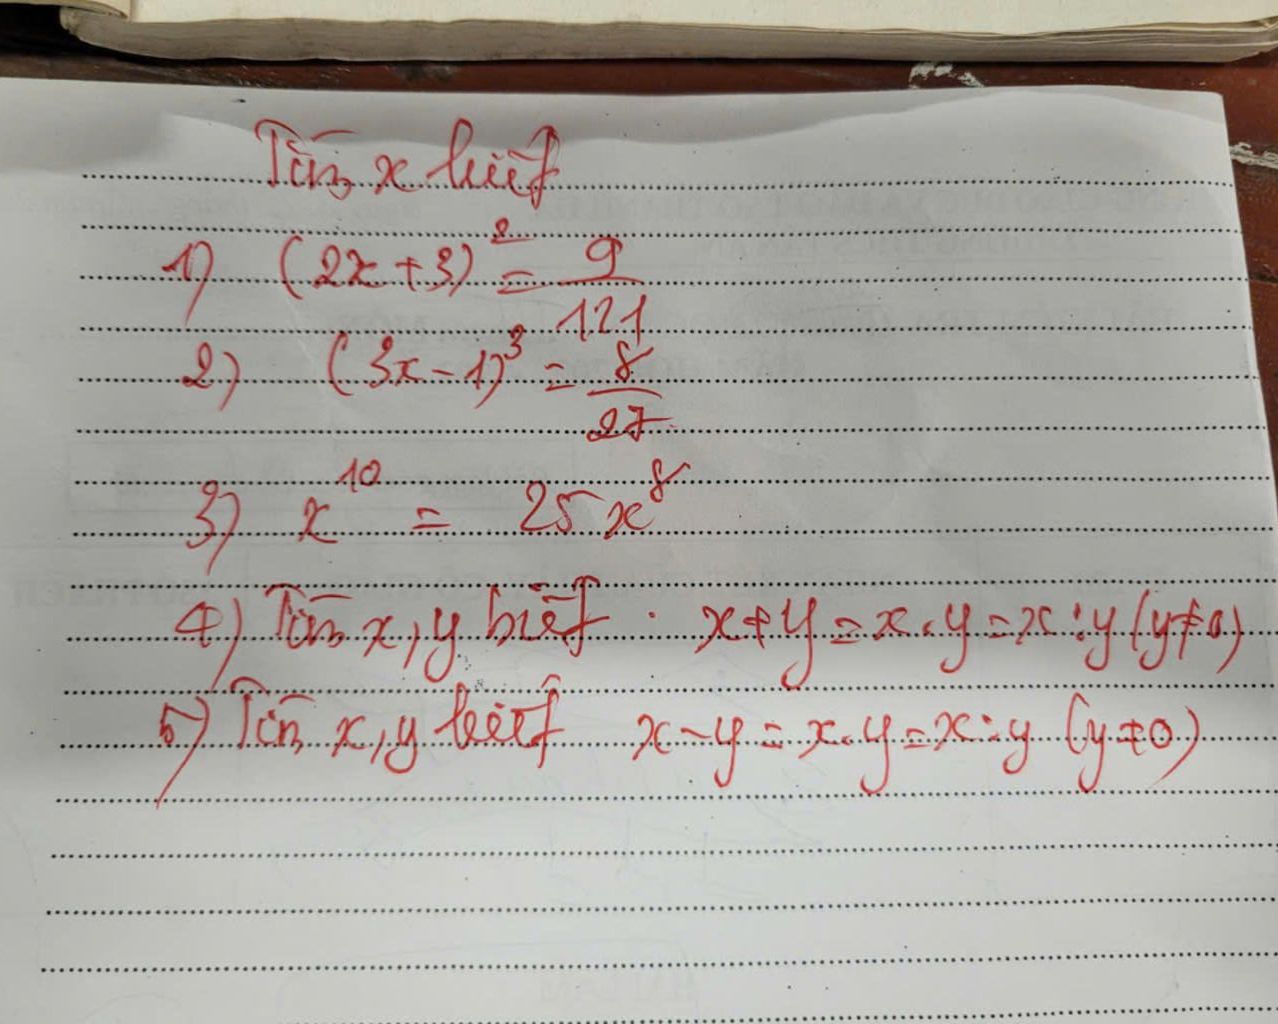 Tìm x biết
1) (2x+3)² = 9/121
2) (3x-1)³ = 8/27
3) x¹⁰ = 25x⁸
4) Tìm x, y biết . x+y = x.y = x:y (y≠0)
5) Tìm x, y biết x-y = x.y = x:y (y≠0)